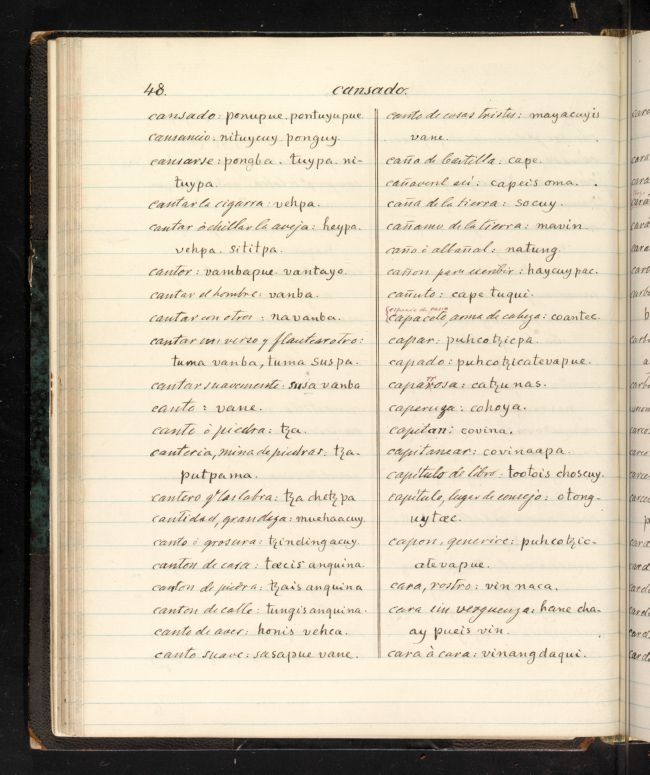 48.
cansado.
cansado: ponupue. pontuyupue.
cansancio: nituycuy. ponguy.
cansarse: pongba. tuypa. ni-
tuypa.
cantar la cigarra: vehpa.
cantar ò chillar la aveja: heypa.
vehpa. sititpa.
cantor: vambapue. vantayo.
cantar el hombre: vanba.
cantar con otros: navanba.
cantar un verso y flautear otro:
tuma vanba, tuma suspa.
cantar suavemente: susa vanba
canto: vane.
canto ò piedra: tza.
canteria, mina de piedras: tza-
putpama.
cantero q. las labra: tza chetzpa
cantidad, grandeza: muehaacuy.
canto ò grosura: tzindingacuy.
canton de casa: tæcis anquina.
canton de piedra: tzais anquina
canton de calle: tungis anquina.
canto de aves: honis vehca.
canto suave: sasapue vane.
canto de cosas tristes: mayacuyis
vane.
caña de Castilla: cape.
cañaveral asi: capeis oma.
caña de la tierra: socuy.
cañamo de la tierra: mavin.
caño ò albañal: natung.
cañon para escribir: haycuypac.
cañuto: cape tuqui.
especie de vaso
capacete, arma de cabeza: coantec.
capar: puhcotzicpa.
capado: puhcotzicatevapue.
caparrosa: catzunas.
caperuza: cohoya.
capitan: covina.
capitanear: covinaapa.
capitulo de libro: tootois choscuy.
capitulo, lugar de consejo: otong-
uytæc.
capon, generice: puhcotzic-
atevapue.
cara, rostro: vin naca.
cara sin verguenza: hane cha-
ay pueis vin.
cara à cara: vinangdaqui.